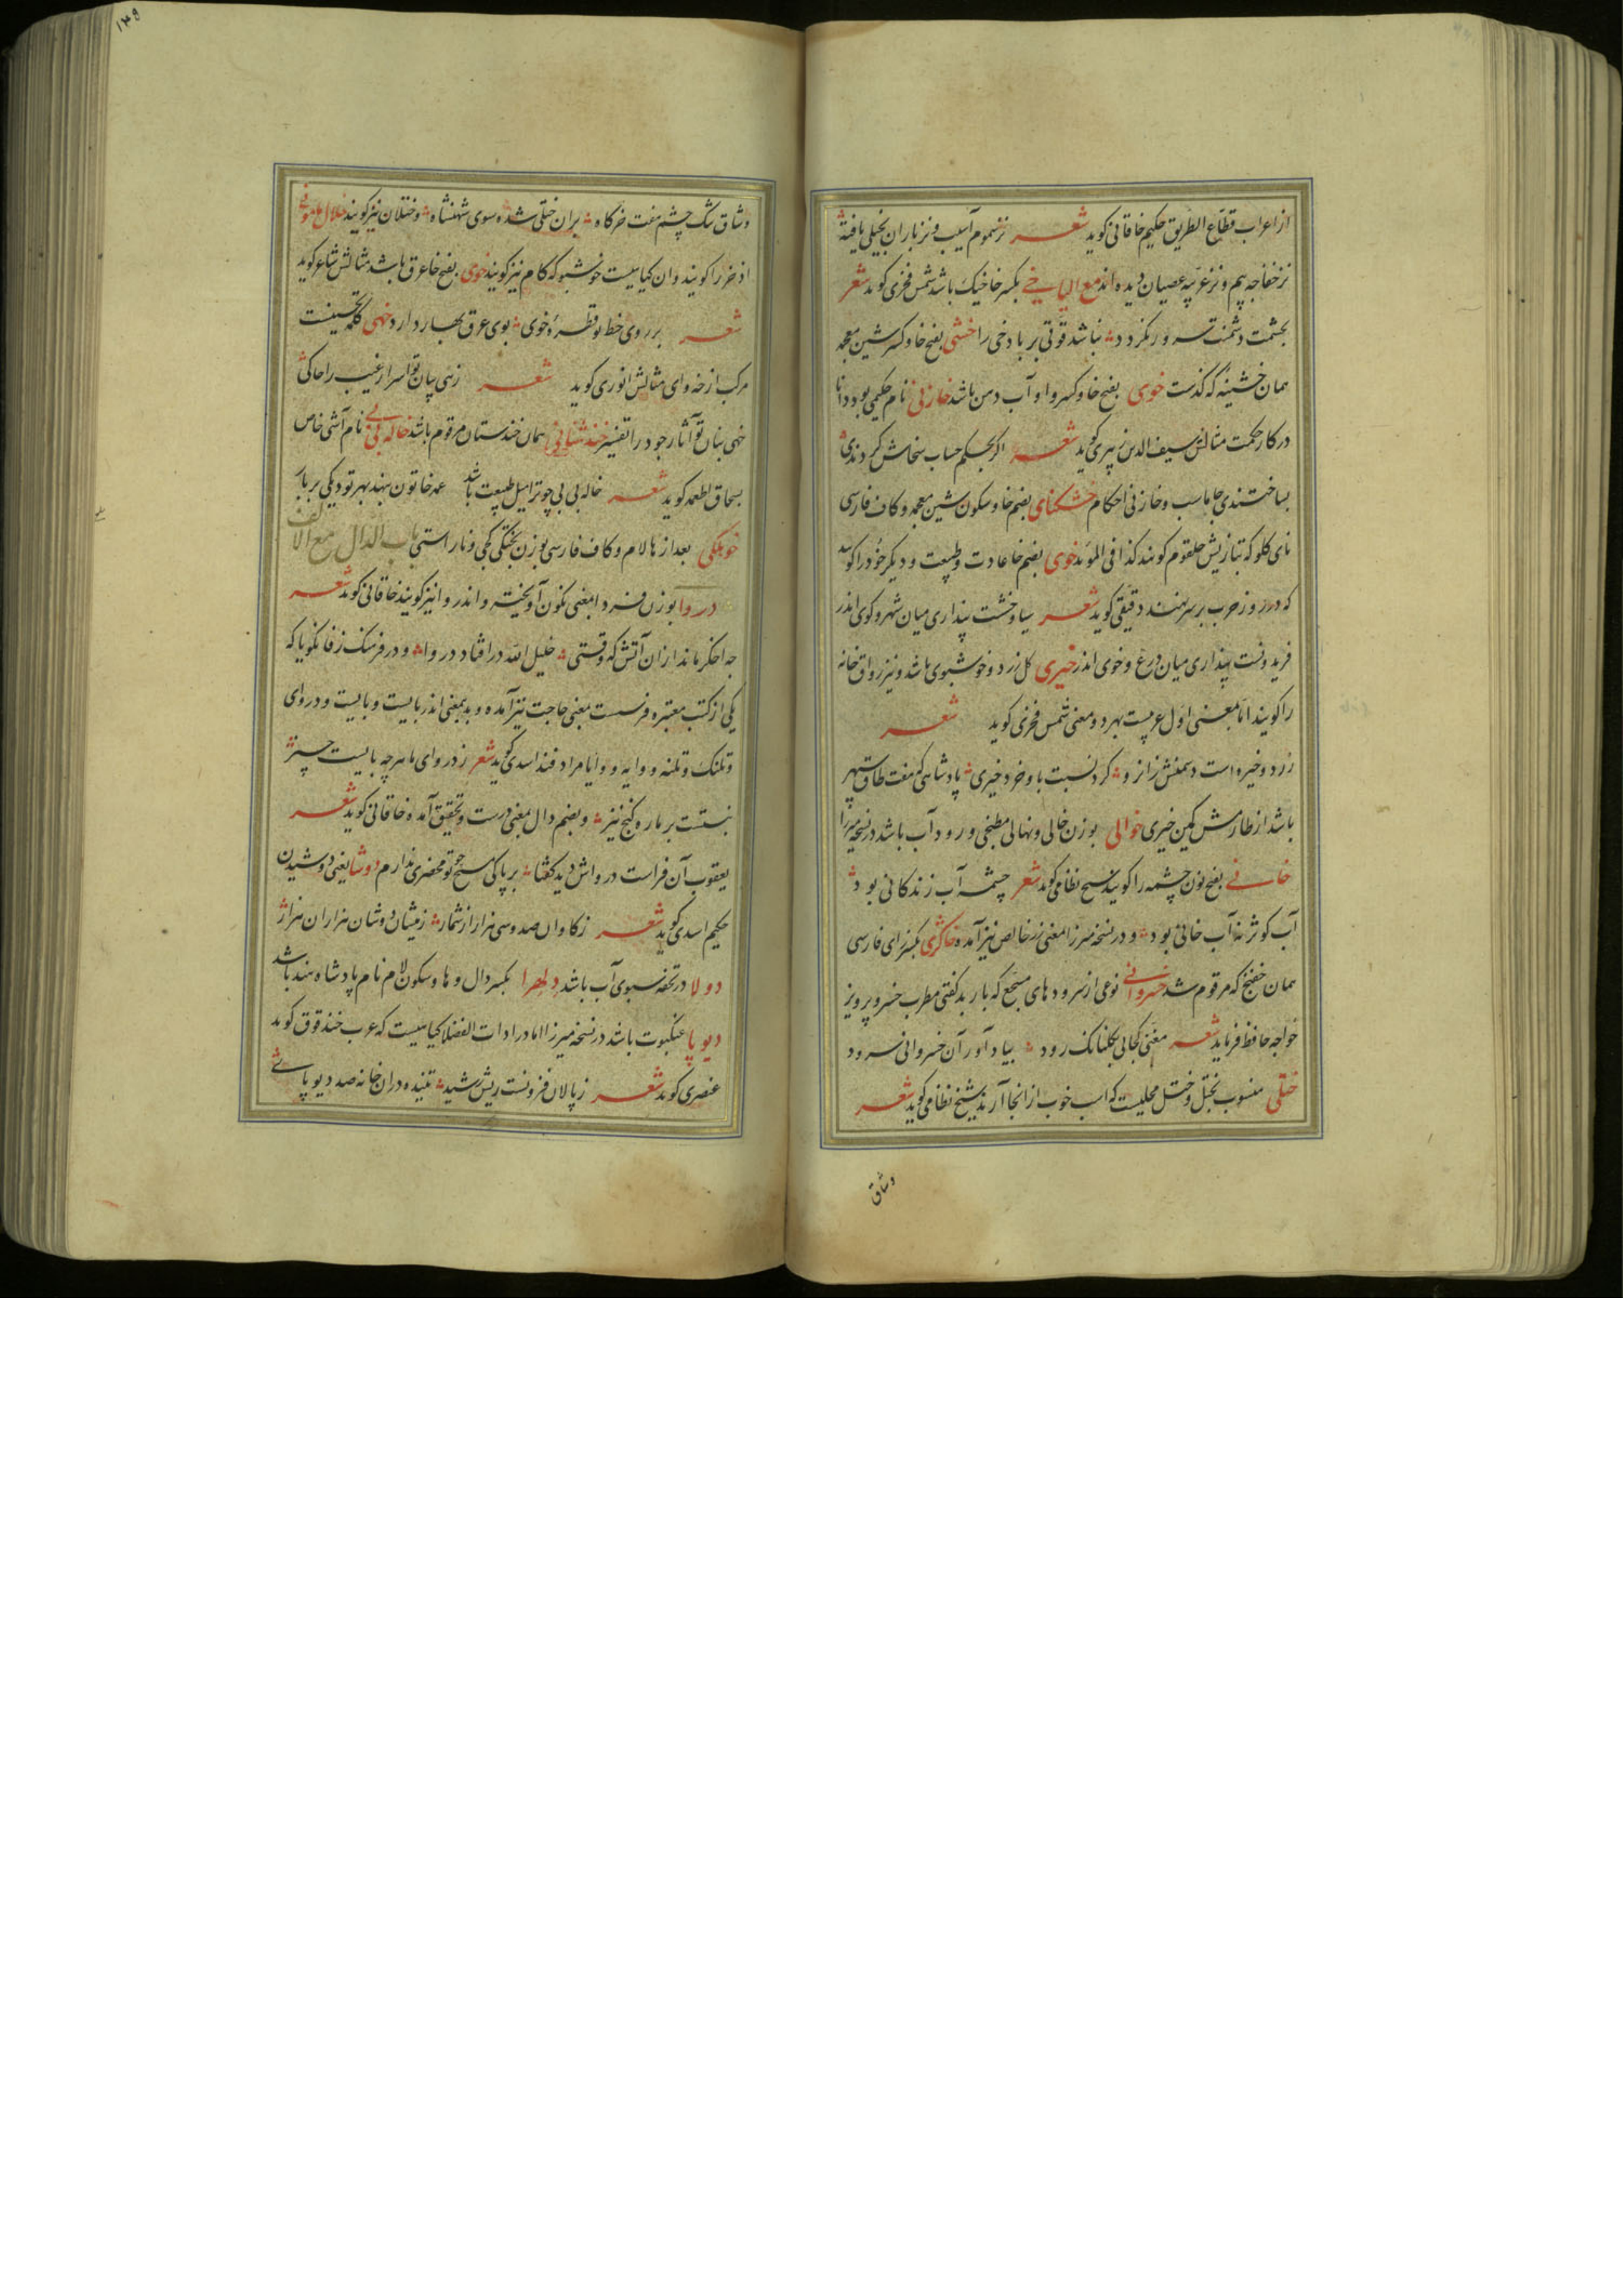 از اعراب قطاع الطریق حکیم خاقانی گوید شعر نز سموم آسیب و نز باران بخیلی یافته
نز خفاجه بیم و نز غزیه عصیان دیده اند مع الیا خی بکسر خا خیک باشد شمس فخری گوید شعر
بحشمت دشمنت سرور نکردد نباشد قوتی بر باد خی را خشی بفتح خا و کسر شین معجمه
همان خشینه که گذشت خوی بفتح خا و کسر واو آب دهن باشد خازنی نام حکیمی بود دانا
در کار حکمت مثالش سیف الدین گوید شعر اگر بحکم حساب سخاش کردندی
بساختندی جاماسب و خازنی احکام خشکنای بضم خا و سکون شین معجمه و کاف فارسی
نای کلو که بتازیش حلقوم گویند کذا فی المؤید خوی بضم خا عادت و طبیعت و دیگر خود را گویند
که در روز حرب بر سر نهند دقیقی گوید شعر سیاوخشت پنداری میان شهر و کوی اندر
فریدونست پنداری میان درع و خوی اندر خیری کل زرد و خوشبوی باشد و نیز رواق خانه
را گویند اما معنی اول عربیست بهر دو معنی شمس فخری گوید شعر
زرد و خیره است دشمنش زانرو کرد نسبت با و خرد خیری پادشاهی که هفت طاق سپهر
باشد از طارمش کمین خیری خوالی بوزن خالی و نهالی مطبخی و رود آب باشد در نسخه میرزا
خانی بفتح نون چشمه را گویند شیخ نظامی گوید شعر چشمه آب زندکانی بود
آب کوثر نه آب خانی بود و در نسخه میرزا معنی زر خالص نیز آمده خاکژی بکسر زای فارسی
همان خفنج که مرقوم شد خسروانی نوعی از سرودهای مسجع که باربد گفتی مطرب خسرو پرویز
خواجه حافظ فرماید شعر مغنی کجائی بکلبانک رود بیاد آور آن خسروانی سرود
ختلی منسوب بختل و ختل محلیست که اسب خوب از انجا آرند شیخ نظامی گوید شعر
وشاق
۱۴۹
وشاق تنک چشم هفت خرکاه بران ختلی شده سوی شهنشاه و ختلان نیز گویند خلال مامونی
اذخر را گویند و ان کیاهیست خوشبو که کام نیز گویند خوی بفتح خا عرق باشد مثالش شاعر گوید
شعر بر روی خط تو قطره خوی بوی عرق بهار دارد خهی کلمه تحسینست
مرکب از خه و ای مثالش انوری گوید شعر زهی بیان تو اسرار غیب را حاکی
خهی بنان تو آثار جود را تفسیر خندستانی همان خندستان مرقوم باشد خاله بی بی نام آشی خاص
بسحاق اطعمه گوید شعر خاله بی بی چو ترا میل طبیعت باشد عمه خاتون بنهد بهر تو دیکی بر بار
خوهلکی بعد از ها لام و کاف فارسی بوزن بختکی کجی و ناراستی باب الدال مع الالف
دروا بوزن فردا معنی نکون آویخته و اندروا نیز گویند خاقانی گوید شعر
چه اخکر ماند از ان آتش که وقتی خلیل الله در افتاد دروا و در فرهنک زفانکویا که
یکی از کتب معتبره فرسست معنی حاجت نیز آمده و بدیمعنی اندر بایست و بایست و دروای
و تلنک و تلنه و وایه و وایا مرادفند اسدی گوید شعر ز دروای ما هر چه بایست چیز
نبشتست بر باره گنج نیز و بضم دال معنی درست و تحقیق آمده خاقانی گوید شعر
یعقوب آن فراست درواش دید گفتا بر پاکی مسیح چو تو محضری ندارم دوشا یعنی دوشیدن
حکیم اسدی گوید شعر ز کاوان صد و سی هزار از شمار ز میشان دوشان هزاران هزار
دولا در تحفه سبوی آب باشد دلهرا بکسر دال و ها و سکون لام نام پادشاه هند باشد
دیوپا عنکبوت باشد در نسخه میرزا اما در ادات الفضلا کیاهیست که عرب خندقوق گوید
عنصری گوید شعر ز پالان فزونست ریش رشید تنیده دران خانه صد دیوپای